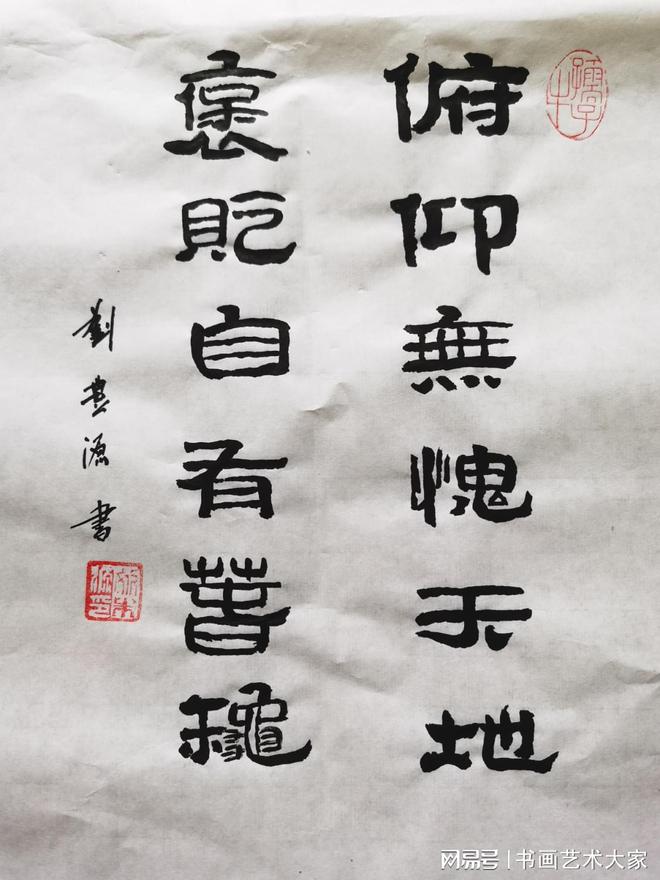 孺子牛
俯仰無愧天地
褒貶自有萅龝
劉源書
网易号 | 书画艺术大家